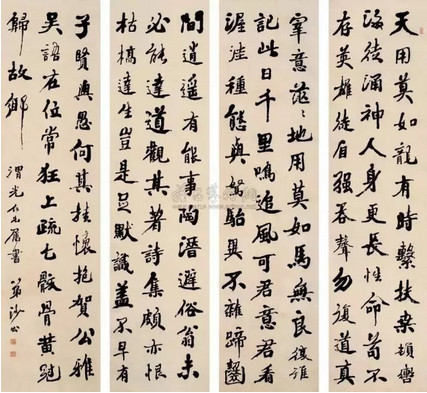 天用莫如龍有時繫扶桑頓轡
海徒涌神人身更長性命苟不
存英雄徒自强吞聲勿復道真
宰意茫〻地用莫如馬無良復誰
記此日千里鳴追風可君意君看
渥洼種態與駑駘異不雜蹄齧
間逍遥有能事陶潛避俗翁未
必能達道觀其著詩集頗亦恨
枯槁達生豈是足默識蓋不早有
子賢與愚何其挂懷抱賀公雅
吳語在位常狂上疏乞骸骨黄冠
歸故鄉
渭光仁兄属書 弟沙公